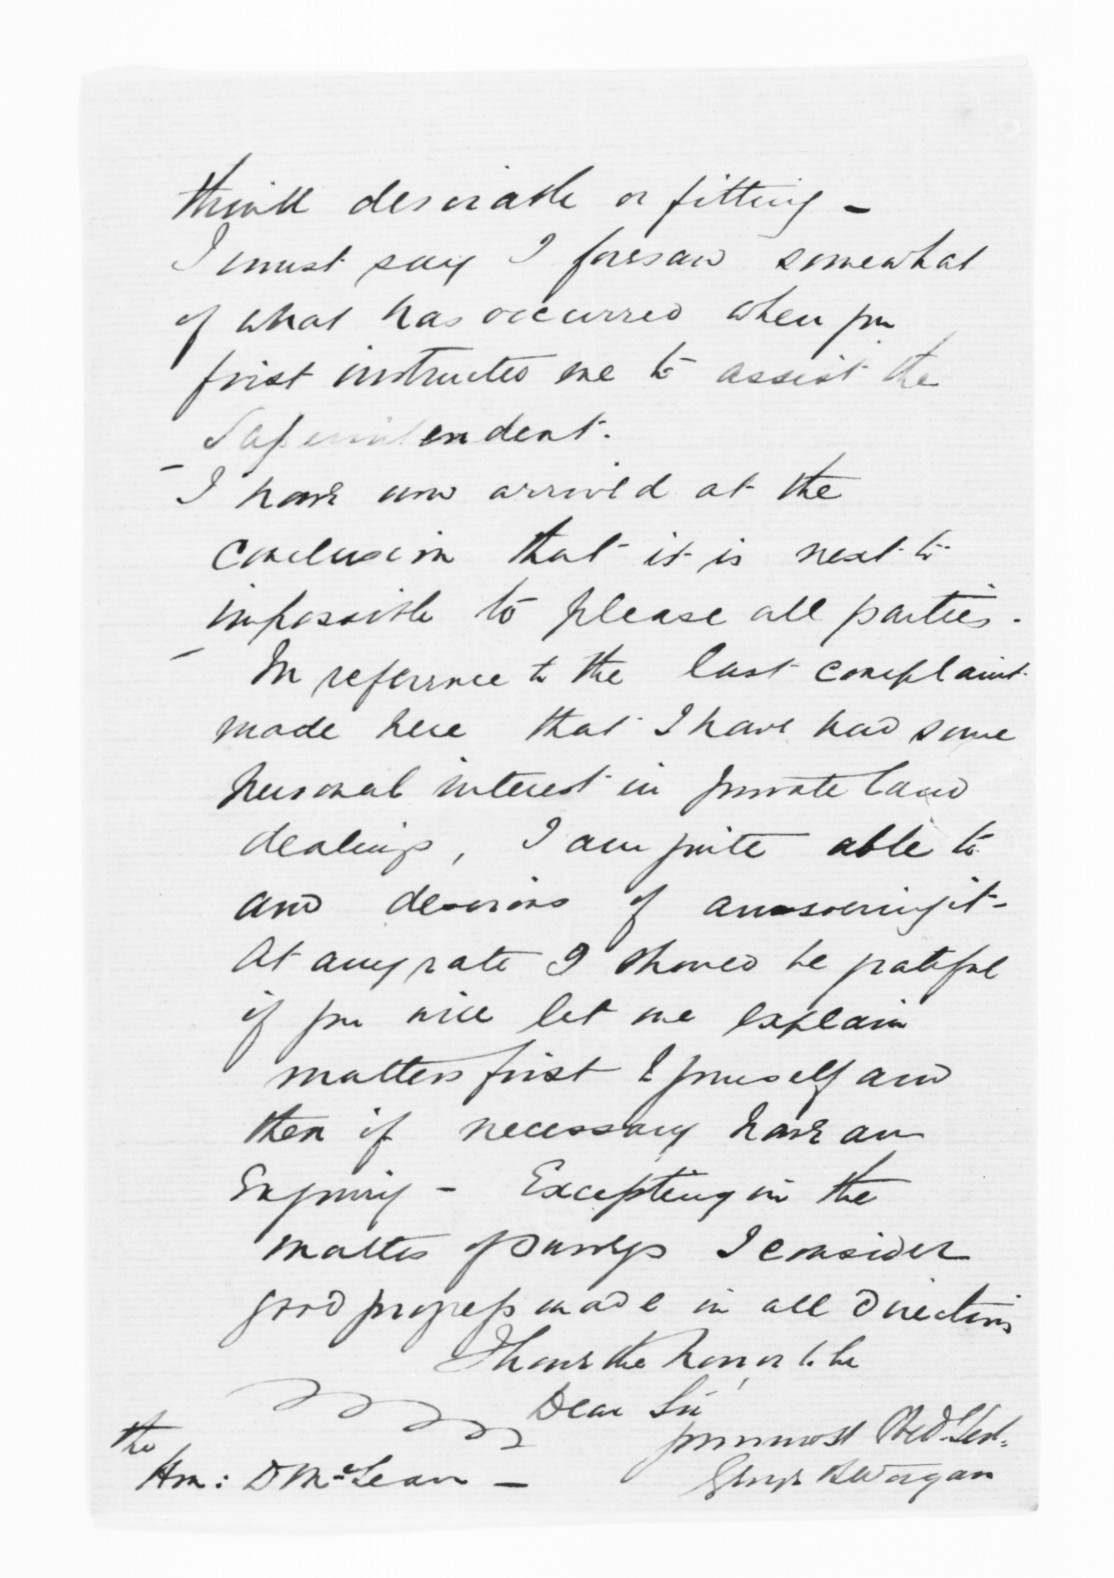 think desirable or fitting –
I must say I foresaw somewhat
of what has occurred when you
first instructed me to assist the
Superintendent.
– I have now arrived at the
conclusion that it is next to
impossible to please all parties.
– In reference to the last complaint
made here that I have had some
personal interest in private land
dealings, I am quite able to
and desirous of answering it –
At any rate I should be grateful
if you will let me explain
matters first to yourself and
then if necessary have an
Enquiry – Excepting in the
matter of Surveys I consider
good progress made in all directions
I have the honor to be
Dear Sir
your most Obed. Servt.
George B Worgan
the
Hon: D McLean –